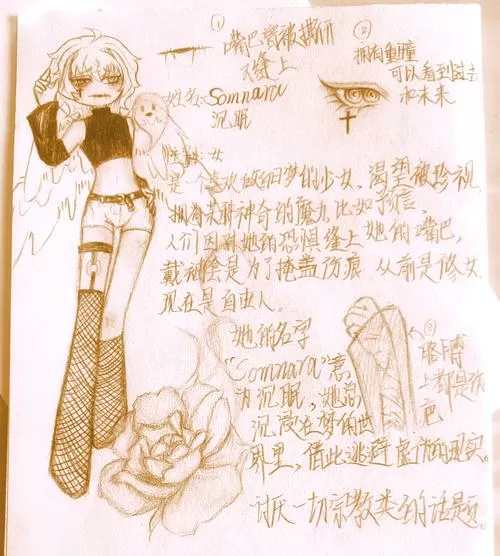 ①
嘴巴曾被撕开
又缝上
②
拥有重瞳
可以看到过去
和未来
姓名: Somnara
沉眠
性别: 女
是一个喜欢做白日梦的少女,渴望被珍视,
拥有某种神奇的魔力,比如预言,
人们因对她的恐惧缝上她的嘴巴,
戴袖套是为了掩盖伤痕 从前是修女
现在是自由人。
她的名字
“Somnara”意
为沉眠,她总
沉浸在梦的世
界里,借此逃避虚伪的现实。
讨厌一切宗教类型的话题。
③
胳膊
上都是伤
疤